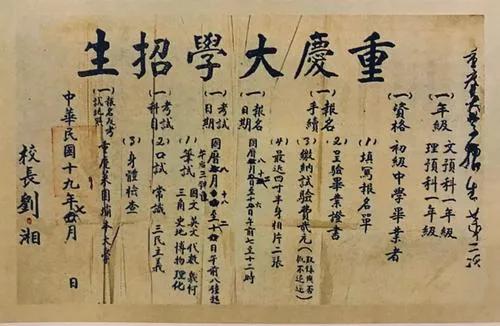 重慶大學招生
重慶大學招生第二次
(一)年級 文預科一年級
理預科一年級
(一)資格 初級中學畢業者
(一)報名手續
(1)填寫報名單
(2)呈驗畢業證書
(3)繳納試驗費貳元(取錄與否概不退还)
(4)最近四寸半身相片二張
(一)報名日期
國曆
日午前七至十二時
(一)考試日期
國曆
日午前八鐘起
午后三鐘
(一)考試科目
(1)筆試 國文 英文 代數 幾何
三角 史地 博物 理化
(2)口試 常識 三民主義
(3)身體檢查
(一)報名及考試地點 重慶菜園壩本大學
中華民國十九年 月 日
校長劉湘